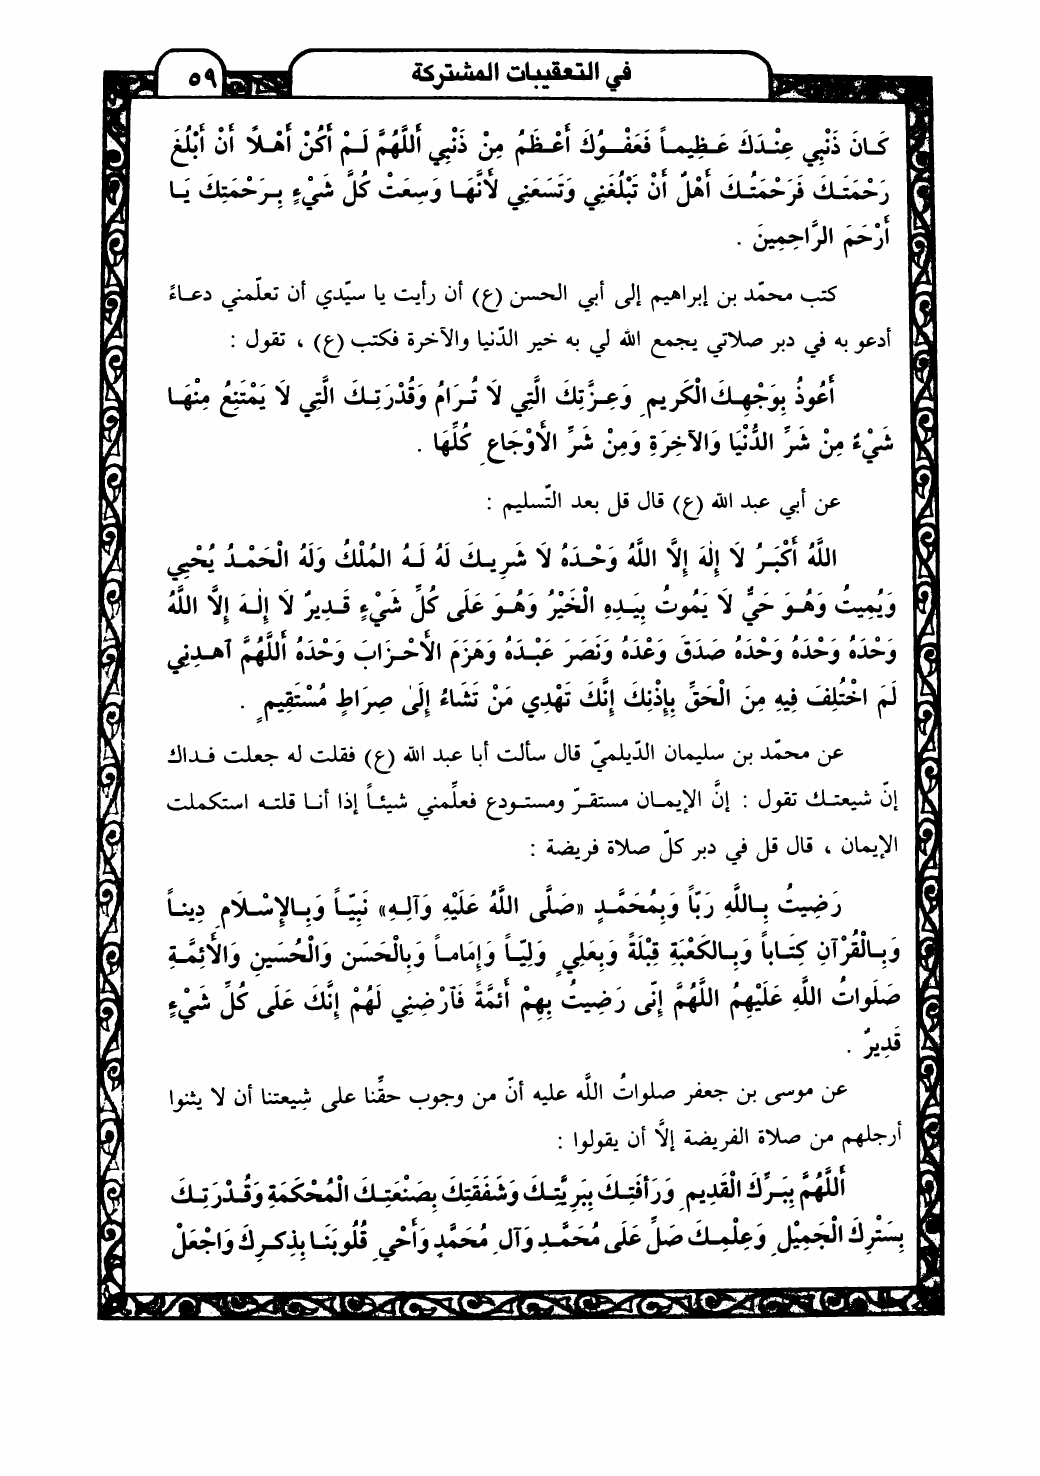 في التعقيبات المشتركة
٥٩
كَـانَ ذَنْبِي عِنْـدَكَ عَـظِيمـاً فَعَفْـوُكَ أَعْـظَمُ مِنْ ذَنْبِي أَللَّهُمَّ لَـمْ أَكُنْ أَهْـلاً أَنْ أَبْلُغَ
رَحْمَتَـكَ فَرَحْمَتُـكَ أَهْلٌ أَنْ تَبْلُغَنِي وَتَسَعَنِي لأَنَّهَـا وَسِعَتْ كُلَّ شَيْءٍ بِـرَحْمَتِكَ يَـا
أَرْحَمَ الرَّاحِمِينَ .
كتب محمّد بن إبراهيم إلى أبي الحسن (ع) أن رأيت يا سيّدي أن تعلّمني دعـاءً
أدعو به في دبر صلاتي يجمع الله لي به خير الدّنيا والآخرة فكتب (ع) ، تقول :
أَعُوذُ بِوَجْهِـكَ الْكَرِيمِ وَعِـزَّتِكَ الَّتِي لَا تُـرَامُ وَقُدْرَتِـكَ الَّتِي لَا يَمْتَنِعُ مِنْهَـا
شَيْءٌ مِنْ شَرِّ الدُّنْيَا وَالآخِرَةِ وَمِنْ شَرِّ الأَوْجَاعِ كُلِّهَا .
عن أبي عبد الله (ع) قال قل بعد التّسليم :
اللَّهُ أَكْبَـرُ لَا إِلٰهَ إِلاَّ اللَّهُ وَحْـدَهُ لَا شَرِيـكَ لَهُ لَـهُ المُلْكُ وَلَهُ الْحَمْـدُ يُحْيِي
وَيُمِيتُ وَهُـوَ حَيٌّ لَا يَمُوتُ بِيَـدِهِ الْخَيْرُ وَهُـوَ عَلَى كُلِّ شَيْءٍ قَـدِيرٌ لَا إِلٰـهَ إِلاَّ اللَّهُ
وَحْدَهُ وَحْدَهُ وَحْدَهُ صَدَقَ وَعْدَهُ وَنَصَرَ عَبْـدَهُ وَهَزَمَ الأَحْـزَابَ وَحْدَهُ أَللَّهُمَّ آهـدِنِي
لَمَ اخْتُلِفَ فِيهِ مِنَ الْحَقِّ بِإِذْنِكَ إِنَّكَ تَهْدِي مَنْ تَشَاءُ إِلَىٰ صِرَاطٍ مُسْتَقِيمٍ .
عن محمّد بن سليمان الدّيلميّ قال سألت أبا عبد الله (ع) فقلت له جعلت فـداك
إنّ شيعتـك تقول : إنَّ الإيمـان مستقـرّ ومستـودع فعلِّمني شيئـاً إذا أنـا قلتـه استكملت
الإيمان ، قال قل في دبر كلّ صلاة فريضة :
رَضِيتُ بِـاللَّهِ رَبّاً وَبِمُحَمَّـدٍ «صَلَّى اللَّهُ عَلَيْهِ وَآلِـهِ» نَبِيّـاً وَبِـالإِسْـلَامِ دِينـاً
وَبِـالْقُرْآنِ كِتَـاباً وَبِـالكَعْبَةِ قِبْلَةً وَبِعَلِيٍ وَلِيّـاً وَإِمَامـاً وَبِالْحَسَنِ وَالْحُسَينِ وَالأَئِمَّـةِ
صَلَواتُ اللَّهِ عَلَيْهِمُ اللَّهُمَّ إِنّى رَضِيتُ بِهِمْ أَئمَّةً فَآرْضِنِي لَهُمْ إِنَّكَ عَلَى كُلِّ شَيْءٍ
قَدِيرٌ .
عن موسى بن جعفر صلواتُ اللَّه عليه أنّ من وجوب حقِّنا على شِيعتنا أن لا يثنوا
أرجلهم من صلاة الفريضة إلاَّ أن يقولوا :
أَللَّهُمَّ بِبَـرِّكَ الْقَدِيمِ وَرَأفَتِـكَ بِبَرِيَّتِـكَ وَشَفَقَتِكَ بِصَنْعَتِـكَ الْمُحْكَمَةِ وَقُـدْرَتِـكَ
بِسَتْرِكَ الْجَمِيْلِ وَعِلْمِـكَ صَلِّ عَلَى مُحَمَّـدٍ وَآلِ مُحَمَّدٍ وَأَحْيِ قُلُوبَنَـا بِذِكـرِكَ وَاجْعَلْ